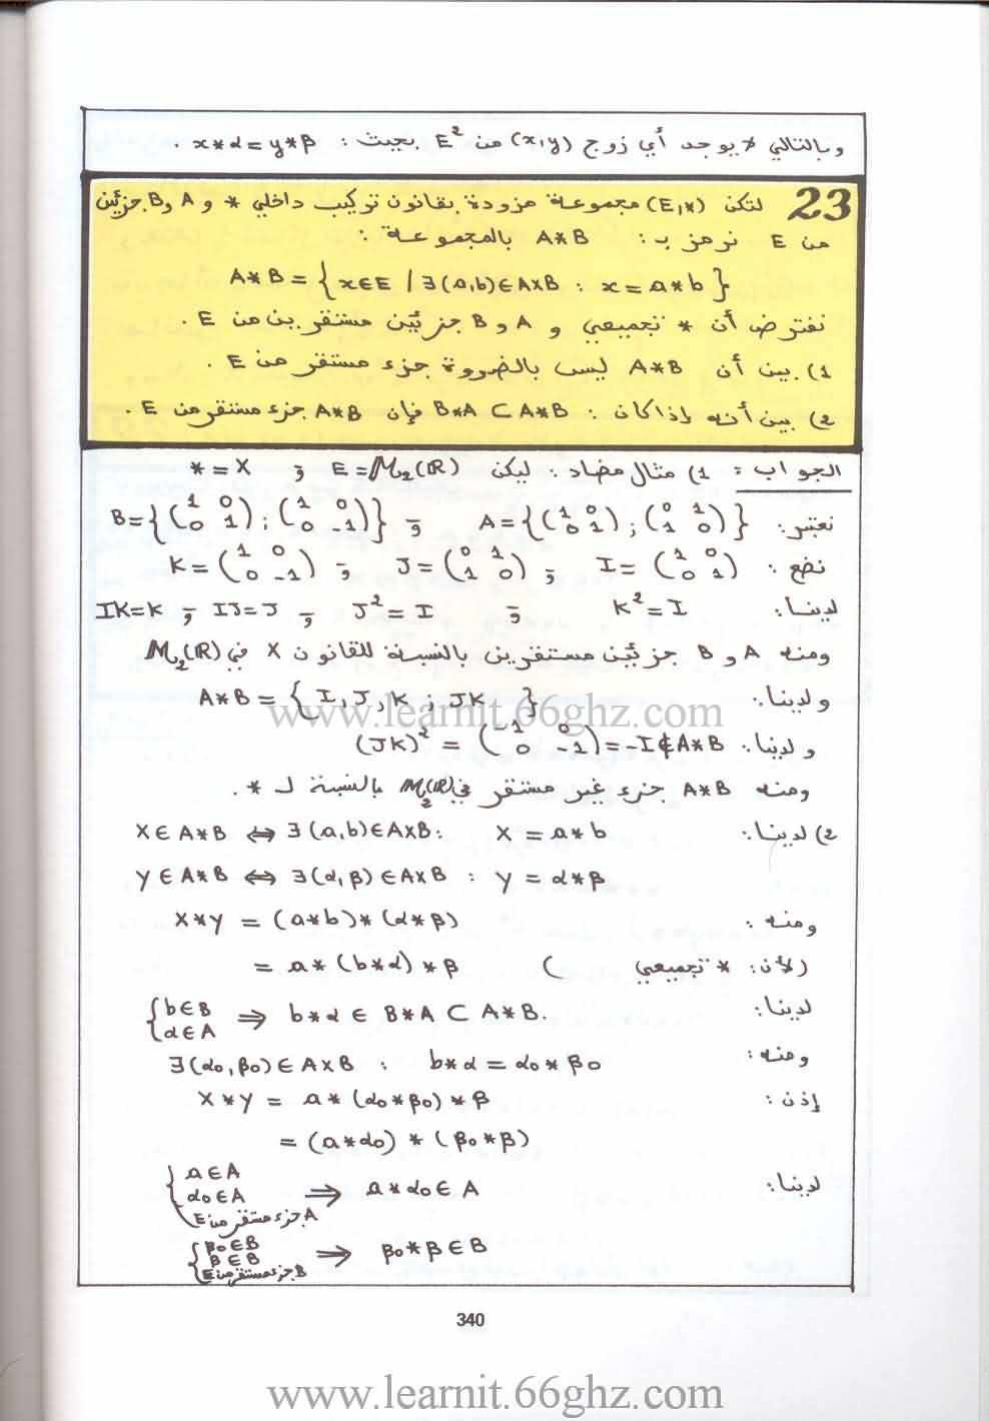 وبالتالي لا يوجد أي زوج (x,y) من E² بحيث : x*α = y*β .
23 لتكن (E,*) مجموعة مزودة بقانون تركيب داخلي * و A و B جزئين
من E نرمز بـ : A*B بالمجموعة :
A*B = { x∈E / ∃(a,b)∈A×B : x = a*b }
نفترض أن * تجميعي و A و B جزئين مستقرين من E .
1) بين أن A*B ليس بالضرورة جزء مستقر من E .
2) بين أنه إذا كان : B*A ⊂ A*B فإن A*B جزء مستقر من E .
الجواب : 1) مثال مضاد : ليكن E = M₂(ℝ) و * = ×
نعتبر : A = {(1 0 ; 0 1) ; (0 1 ; 1 0)} و B = {(1 0 ; 0 1) ; (1 0 ; 0 -1)}
نضع : I = (1 0 ; 0 1) و J = (0 1 ; 1 0) و K = (1 0 ; 0 -1)
لدينا : K² = I و J² = I و IJ = J و IK = K
ومنه A و B جزئين مستقرين بالنسبة للقانون × في M₂(ℝ)
ولدينا : A*B = { I, J, K ; JK }
www.learnit.66ghz.com
ولدينا : (JK)² = (-1 0 ; 0 -1) = -I ∉ A*B
ومنه A*B جزء غير مستقر في M₂(ℝ) بالنسبة لـ * .
2) لدينا : X ∈ A*B ⇔ ∃(a,b)∈A×B : X = a*b
Y ∈ A*B ⇔ ∃(α,β) ∈ A×B : Y = α*β
ومنه : X*Y = (a*b)*(α*β)
= a*(b*α)*β (لأن : * تجميعي)
لدينا : { b∈B ; α∈A ⇒ b*α ∈ B*A ⊂ A*B.
ومنه : ∃(α₀,β₀) ∈ A×B : b*α = α₀*β₀
إذن : X*Y = a*(α₀*β₀)*β
= (a*α₀)*(β₀*β)
لدينا : { a∈A ; α₀∈A ; A جزء مستقر من E ⇒ a*α₀ ∈ A
{ β₀∈B ; β∈B ; B جزء مستقر من E ⇒ β₀*β ∈ B
340
www.learnit.66ghz.com